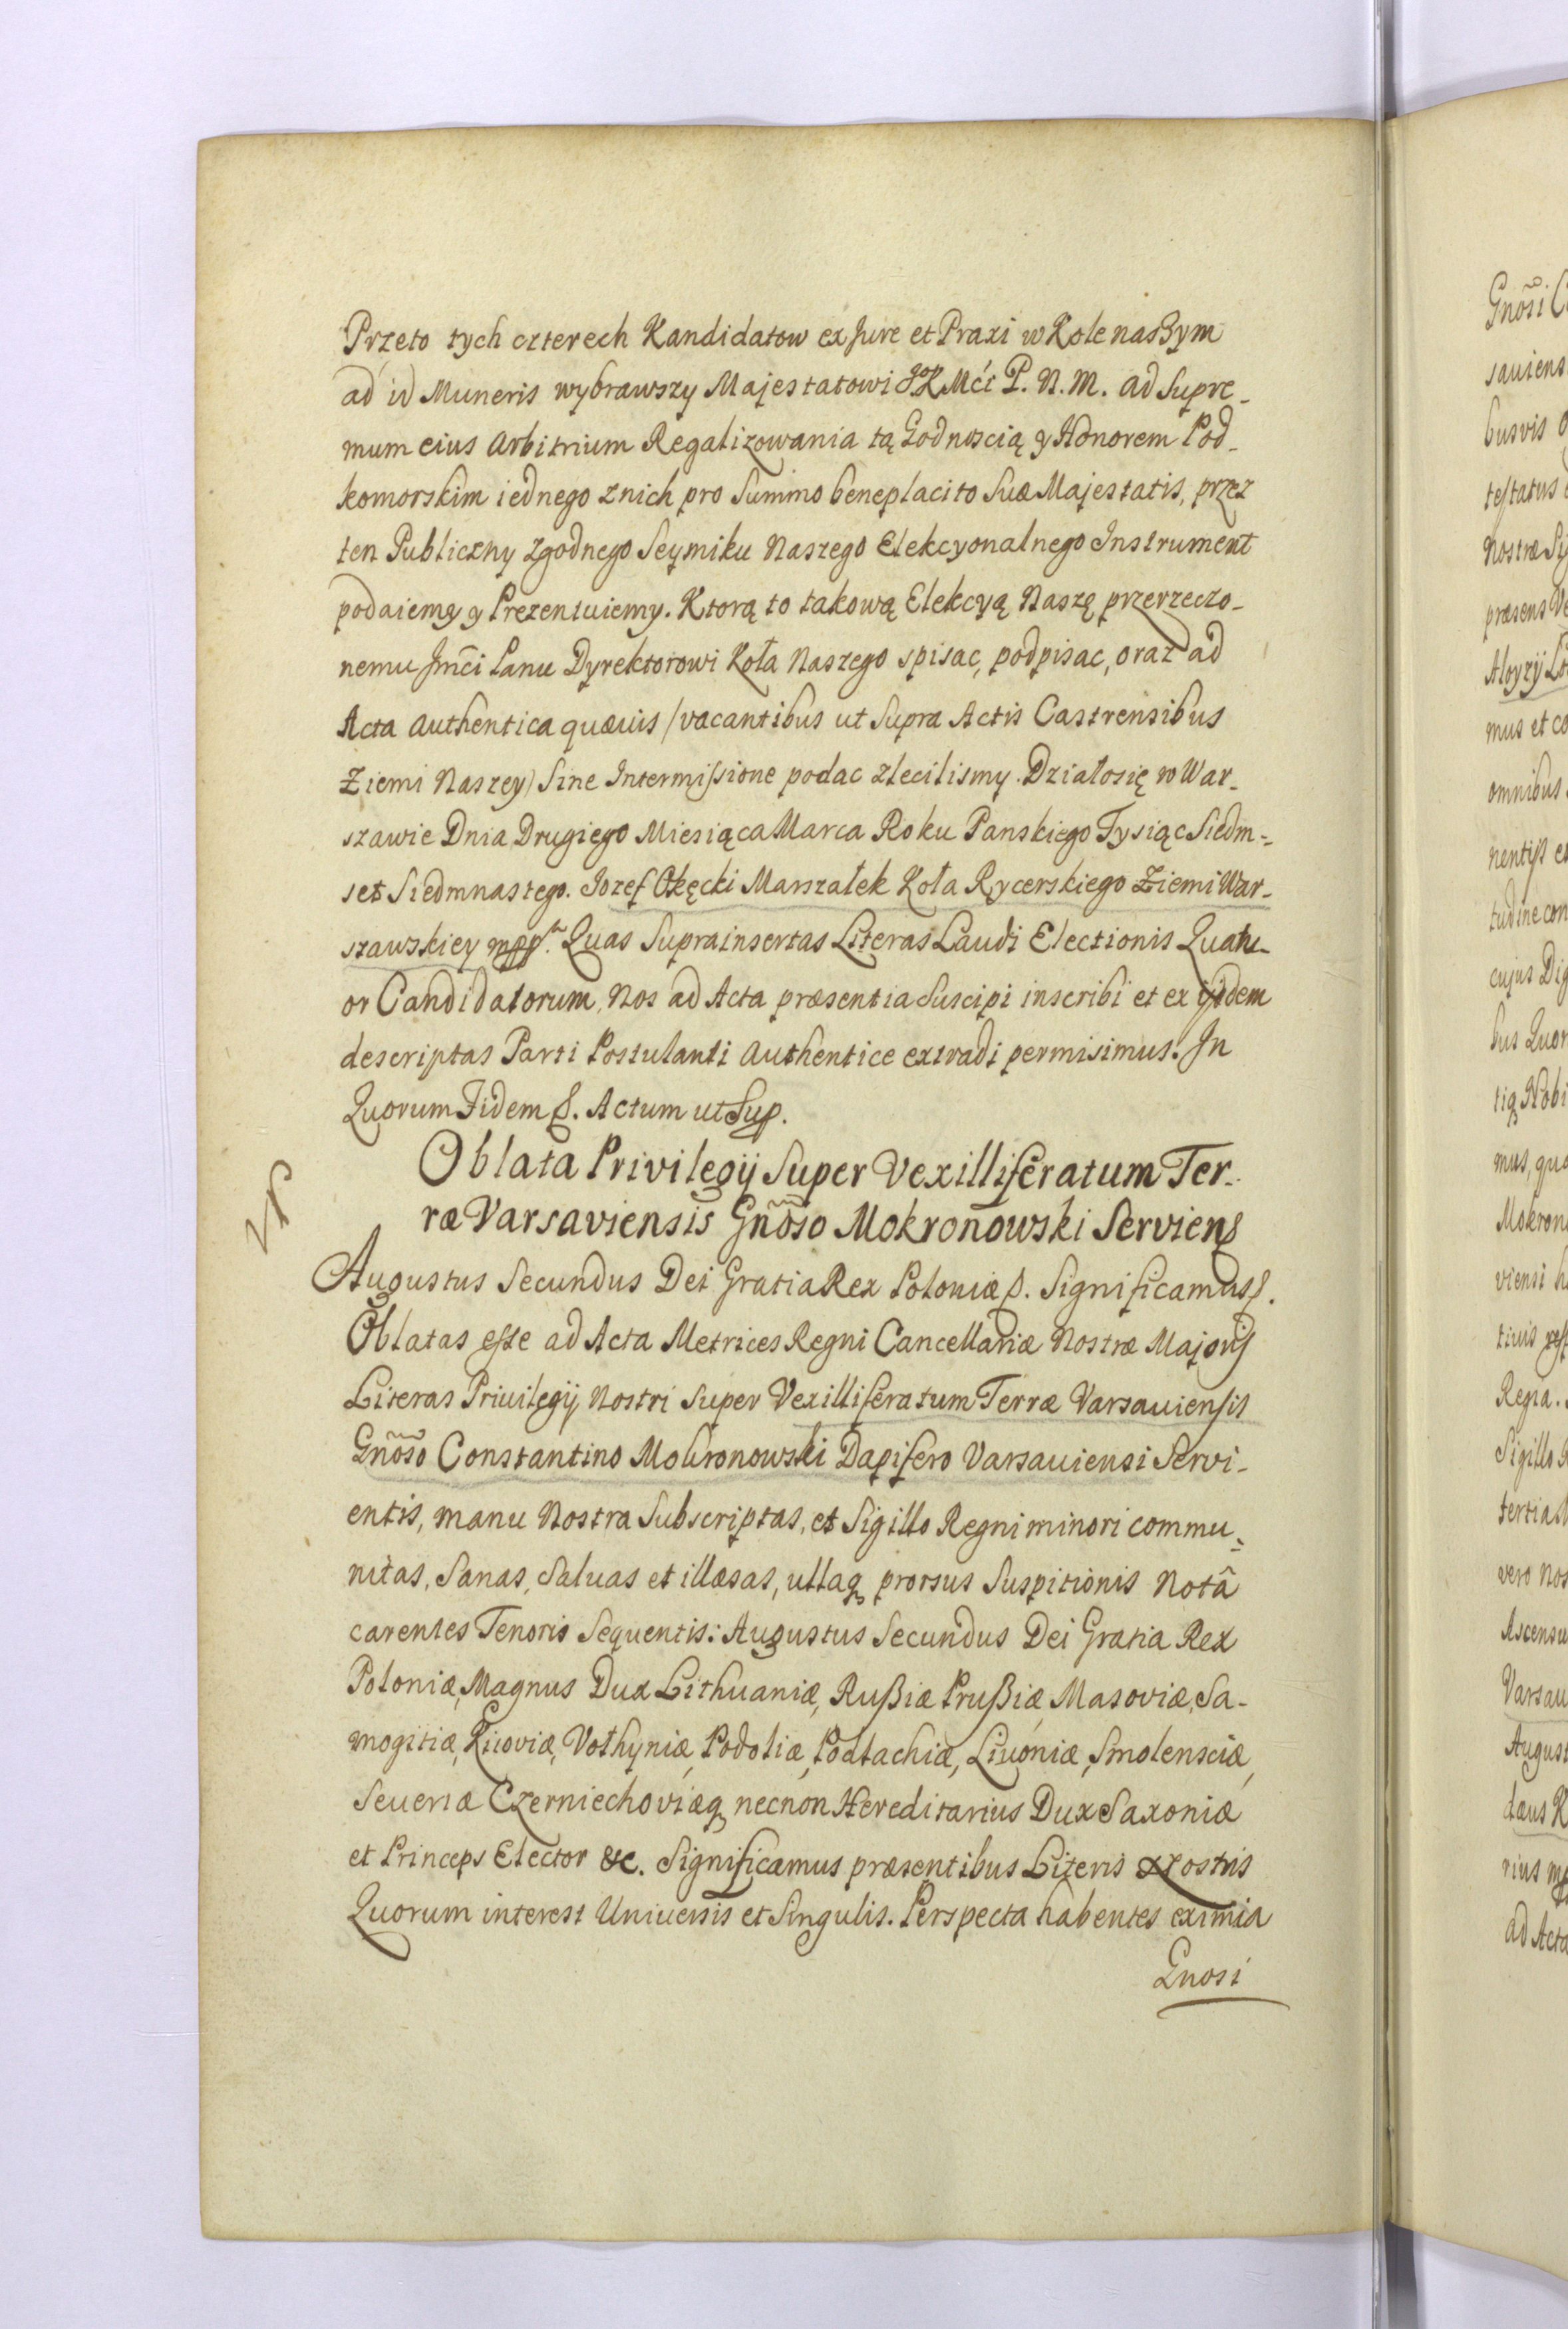 Przeto tych czterech Kandidatow ex Jure et Praxi w Kole naszym
ad id Muneris wybrawszy Majestatowi JoKMći P. N. M. ad Supre-
mum eius Arbitrium Regalizowania tą Godnoscią y Honorem Pod-
komorskim iednego znich pro Summo beneplacito Suæ Majestatis, przez
ten Publiczny Zgodnego Seymiku Naszego Elekcyonalnego Instrument
podaiemy y Prezentuiemy. Ktorą to takową Elekcyą Naszę przerzeczo-
nemu Jmći Panu Dyrektorowi Koła Naszego spisac, podpisac, oraz ad
Acta Authentica quævis /vacantibus ut Supra Actis Castrensibus
Ziemi Naszey/ Sine Intermissione podac zlecilismy. Działosię w War-
szawie Dnia Drugiego Miesiąca Marca Roku Panskiego Tysiąc Siedm-
set Siedmnastego. Jozef Okęcki Marszałek Koła Rycerskiego Ziemi War-
szawskiey mpp. Quas Suprainsertas Literas Laudi Electionis Quatu-
or Candidatorum, Nos ad Acta præsentia Suscipi inscribi et ex ijsdem
descriptas Parti Postulanti Authentice extradi permisimus. In
Quorum Fidem &. Actum ut Sup.
Oblata Privilegij Super Vexilliferatum Ter-
ræ Varsaviensis Gnõso Mokronowski Serviens
Augustus Secundus Dei Gratia Rex Poloniæ &. Significamus &.
Oblatas esse ad Acta Metrices Regni Cancellariæ Nostræ Majoris
Literas Priuilegij Nostri Super Vexilliferatum Terræ Varsauiensis
Gnõso Constantino Mokronowski Dapifero Varsauiensi Servi-
entis, manu Nostra Subscriptas, et Sigillo Regni minori commu-
nitas, Sanas, Saluas et illæsas, ullaq, prorsus Suspitionis Notâ
carentes Tenoris Sequentis: Augustus Secundus Dei Gratia Rex
Poloniæ, Magnus Dux Lithuaniæ, Rußiæ Prußiæ, Masoviæ, Sa-
mogitiæ, Kiioviæ, Volhyniæ, Podoliæ, Podlachiæ, Liuoniæ, Smolensciæ,
Seueriæ Czerniechoviæq, necnon Hereditarius Dux Saxoniæ
et Princeps Elector &c. Significamus præsentibus Literis Nostris
Quorum interest Uniuersis et Singulis. Perspecta habentes eximia
Gnosi